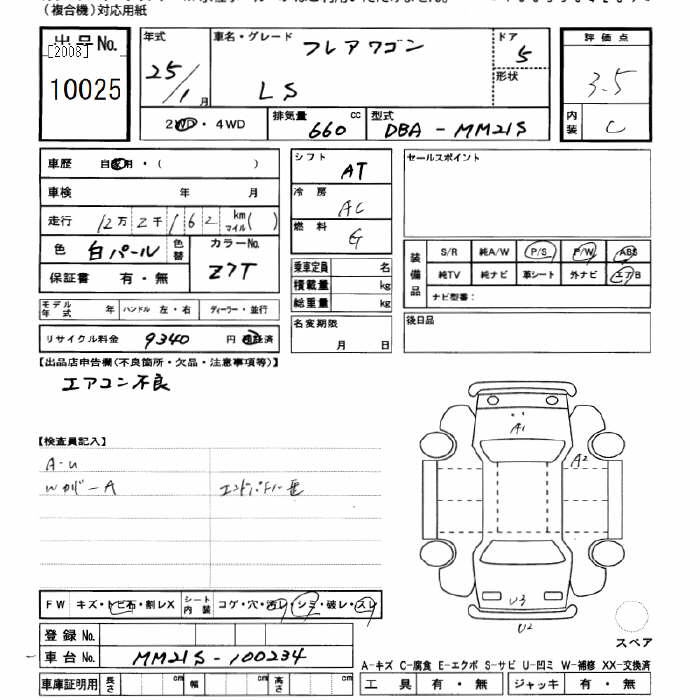 (複合機)対応用紙
出品No.
[2008]
10025
年式
25/1月
車名・グレード
フレアワゴン
LS
ドア
5
形状
評価点
3.5
内装
C
2WD・4WD
排気量 660 cc
型式 DBA-MM21S
車歴 自家用・( )
車検 年 月
走行 12万2千162 km マイル( )
色 白パール 色替
カラーNo. Z7T
保証書 有・無
モデル年式 年 ハンドル 左・右 ディーラー・並行
リサイクル料金 9340 円 預託済
シフト AT
冷房 AC
燃料 G
乗車定員 名
積載量 kg
総重量 kg
名変期限
月 日
セールスポイント
装備品
S/R 純A/W P/S P/W ABS
純TV 純ナビ 革シート 外ナビ エアB
ナビ型番:
後日品
【出品店申告欄(不良箇所・欠品・注意事項等)】
エアコン不良
【検査員記入】
A-U
Wカバ-A
A1
A2
U3
U2
スペア
FW キズ・トビ石・割レX シート内装 コゲ・穴・汚レ・シミ・破レ・スレ
登録No.
車台No. MM21S-100234
A-キズ C-腐食 E-エクボ S-サビ U-凹ミ W-補修 XX-交換済
車庫証明用 長さ cm 幅 cm 高さ cm
工具 有・無 ジャッキ 有・無